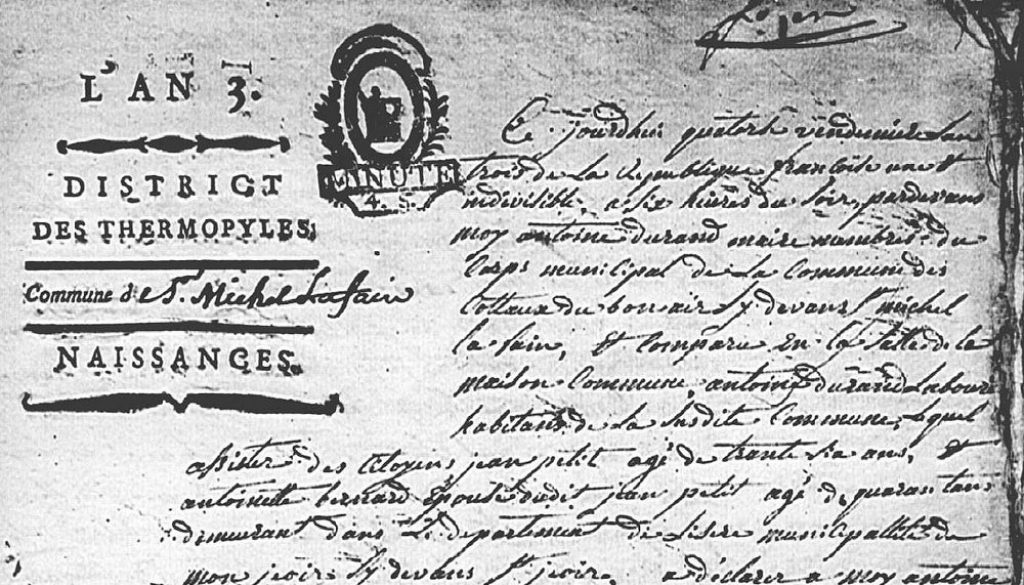 L'AN 3.
DISTRICT
DES THERMOPYLES
Commune de St. Michel Lafain
NAISSANCES.
MINUTE
4. S.
Ce jourdhui quatorse vendemiere Lan
trois de La Republique francoise une Et
indivisible, a six heures du soir, pardevant
moy antoine durand maire membre du
Corps municipal de La Commune des
Cottaux du bon air Sy devans St. michel
la fain, Et Comparu En la Salle de la
maison Commune, antoine durand Laboure
habitant de La Susdite Commune, Lequel
assister des Citoyens jean petit agé de trante six ans, Et
antoinette bernard Epouse dudit jean petit agé de quarantans
demeurant dans Le departement de Lisere municipalité de
mon jevir Sy devans St. jevir, a déclarer a moy antoine